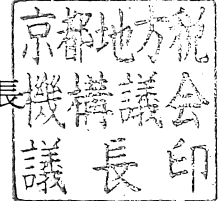 京都地方税
機構議会
議長印
長